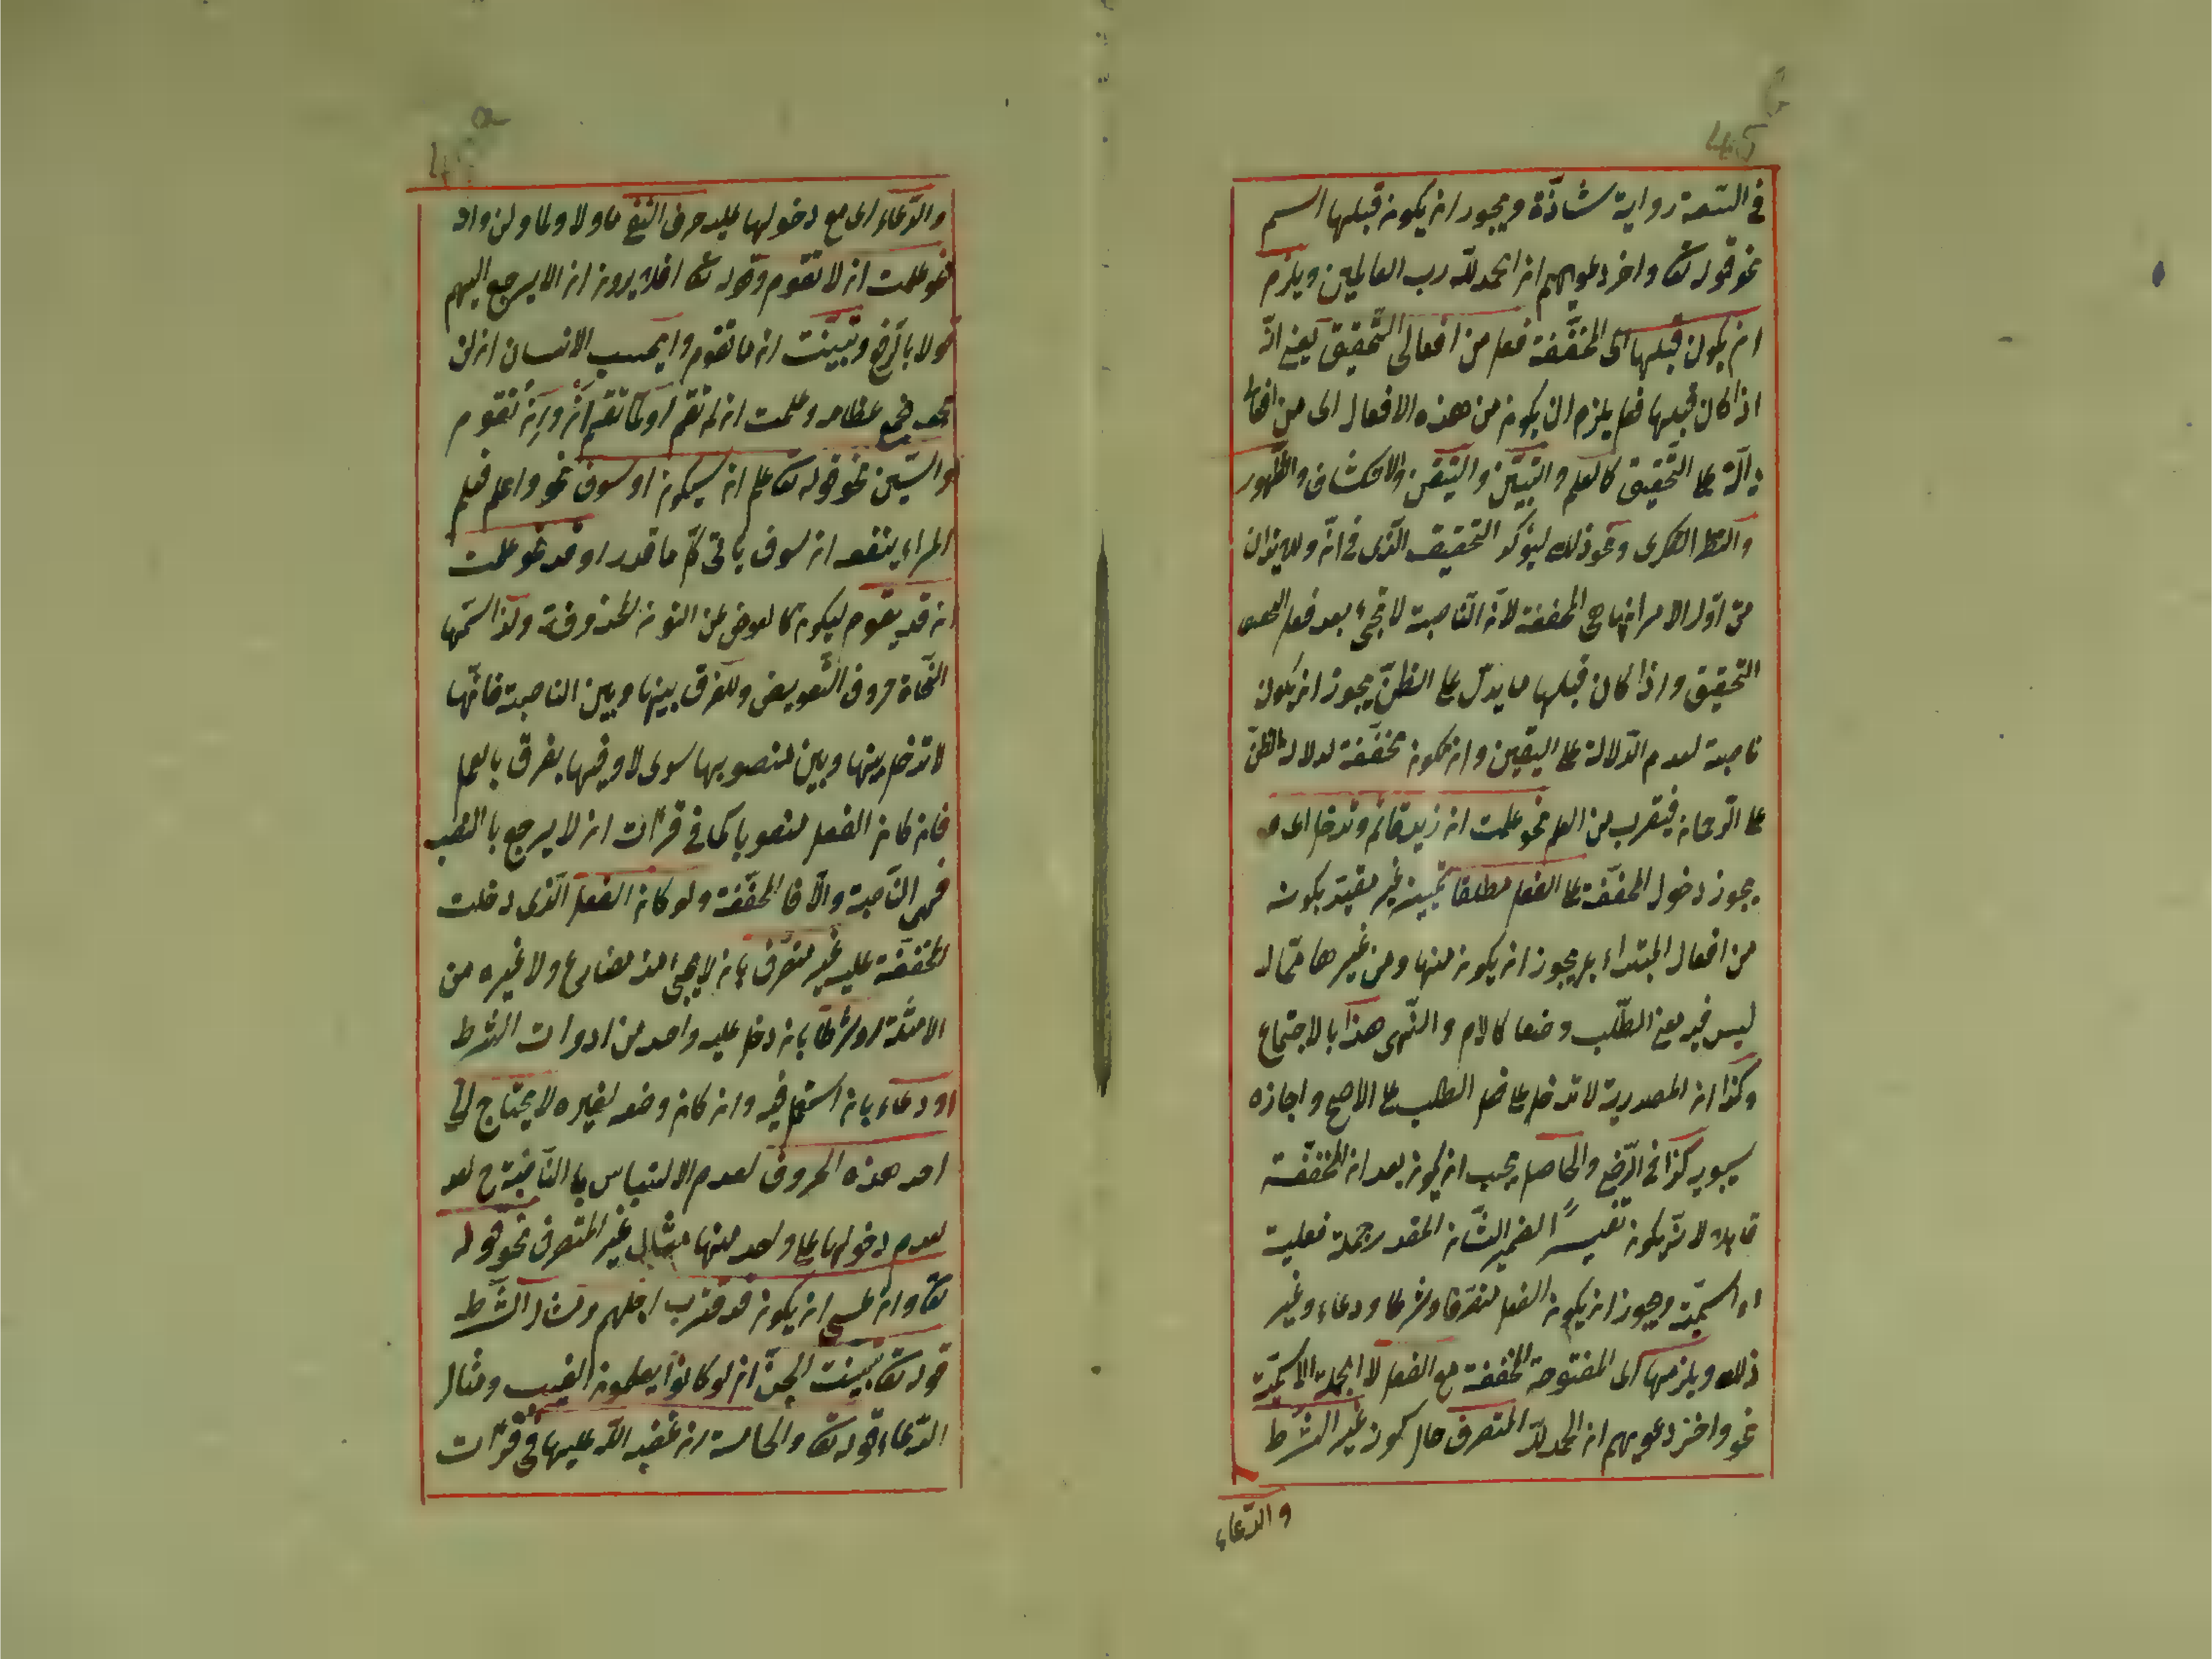 في السعة رواية شاذّة ويجوز ان يكون قبلها اسم
نحو قوله تعا واخر دعويهم ان الحمد للّه رب العالمين ويلزم
ان يكون قبلها اى المخفّفة فعل من افعال التّحقيق يعنى انّ
اذا كان قبلها فعل يلزم ان يكون من هذه الافعال اى من افعال
دالّة على التّحقيق كالعلم والتبيّن والتيقّن والانكشاف والظّهور
والنظر الفكرى ونحو ذلك ليؤكد التحقيق الّذى في انّ وليوذن
من اوّل الامر انها هي المخففة لانّ النّاصبة لا تجئ بعد فعل
التحقيق واذا كان قبلها ما يدلّ على الظنّ يجوز ان يكون
ناصبة لعدم الدّلالة على اليقين وان يكون مخفّفة لدلالة الظنّ
على الرّجحان فيقرب من العلم نحو علمت ان زيد قائم وتدخل اى
يجوز دخول المخفّفة على الفعل مطلقا غير مقيّد بكونه
من افعال المبتداء بل يجوز ان يكون منها ومن غيرها ممّا
ليس فيه معنى الطّلب وضعا كالامر والنّهى هذا بالاجتماع
وكذا ان المصدرية لا تدخل على فعل الطلب على الاصح واجازه
سيبويه كذا في الرّضى والحاصل يجب ان يكون بعد ان المخفّفة
لانّه يكون تفسيرًا لضمير الشّان المقدر جملة فعلية
او اسميّة ويجوز ان يكون الفعل متصرّفا وشرطا ودعاء وغير
ذلك ويلزمها اى المفتوحة المخففة مع الفعل لا الجملة الاسميّة
نحو واخر دعويهم ان الحمد للّه المتصرف حال كونه غير الشّرط
والدّعاء
والدّعاء اى مع دخولها عليه حرف النّفى ما ولا ولما ولن واو
نحو علمت ان لا تقوم وقوله تعا افلا يرون ان الا يرجع اليهم
قولا بالرّفع وتبيّنت ان ما تقوم وايحسب الانسان ان لن
نجمع عظامه وعلمت ان لم تقم او لمّا تقم تقوم
والسّين نحو قوله تعا علم ان سيكون او سوف نحو واعلم فعلم
المراء ينفعه ان سوف ياتى كلّ ما قدر او قد نحو علمت
ان قد يقوم ليكون كالعوض من النون المحذوفة ولذا اسمّها
النّحاة حروف التّعويض وللفرق بينها وبين الناصبة فانّها
لا تدخل بينها وبين منصوبها سوى لا وفيها يفرق بالعمل
فان كان الفعل منصوبا كما في قرآت ان لا يرجع بالنصب
فهى النّاصبة والّا فالمخفّفة ولو كان الفعل الّذى دخلت
المخفّفة عليه غير متصرّف بان لا يجئ منه مضارع ولا غيره من
الامثلة او شرطا بان دخل عليه واحد من ادوات الشرط
او دعاء بان استعمل فيه وان كان وضعه لغيره لا يحتاج الى
احد هذه الحروف لعدم الالتباس بالنّاصبة ح لعد
لعدم دخولها على واحد منها مثال غير المتصرف نحو قوله
تعا وان عسى ان يكون قد قترب اجلهم ومثال الشّرط
قوله تعا تبيّنت الجنّ ان لو كانوا يعلمون الغيب ومثال
الدّعاء قوله تعا والخامسة ان غضب اللّه عليها في قرآت